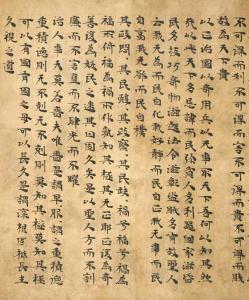 不可得而利不可得而害不可得而貴不可得而賤
故為天下貴
以正治國以奇用兵以无事取天下吾何以知其
天下多忌諱而民彌貧民多利器國家滋昏
民多技巧奇物滋起法令滋彰盜賊多有故聖人
云我无為而民自化我好靜而民自正我无事而民
自富我无欲而民自樸
其政悶悶其民醇醇其政察察其民缺缺禍兮福
所倚福兮禍所伏孰知其極其无正邪正復為奇
善復為妖民之迷其日固久矣是以聖人方而不割
廉而不害直而不肆光而不曜
治人事天莫若嗇夫唯嗇是謂早服早服謂之重積德
重積德則无不克无不克則莫知其極莫知其極
可以有國有國之母可以長久是謂深根固柢長生
久視之道